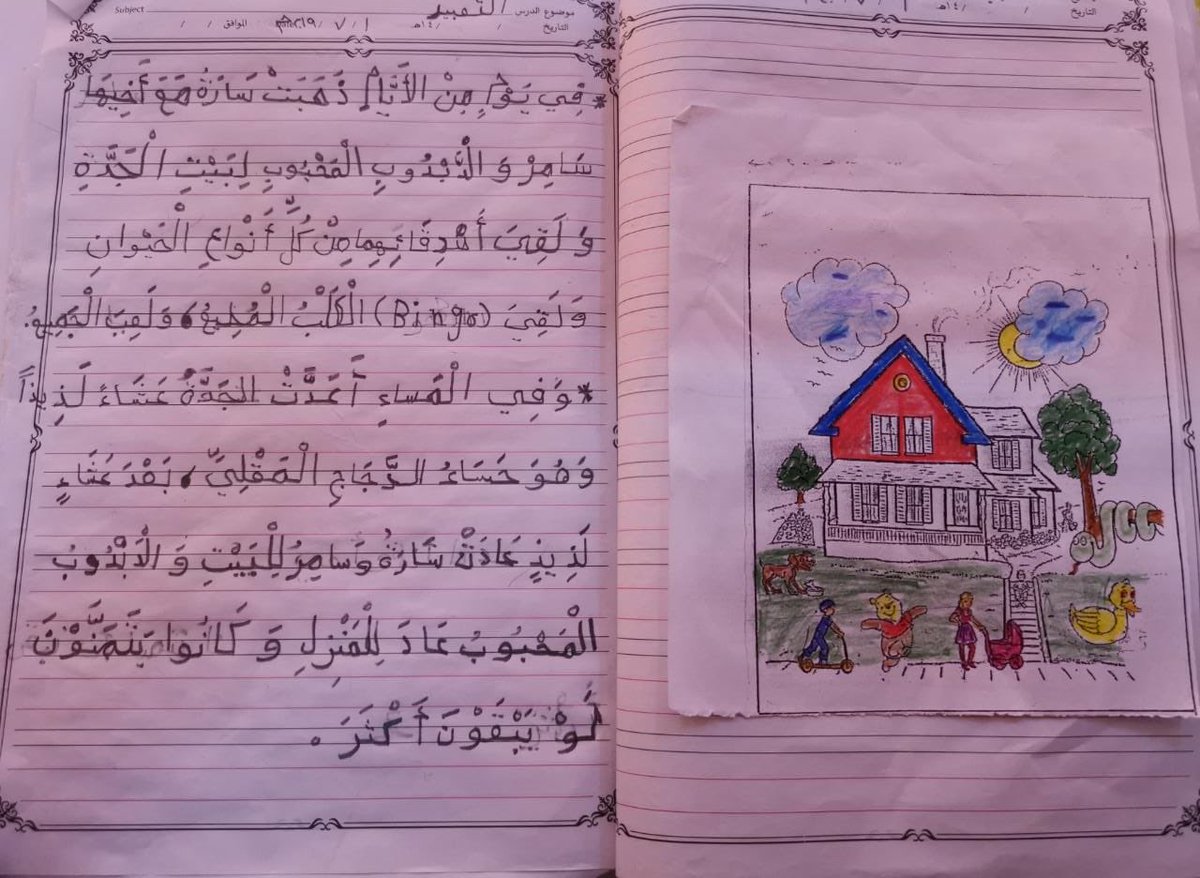 Subject
موضوع الدرس التعبير
التاريخ / / ١٤هـ الموافق ١ / ٧ / ٢٠١٩م
* فِي يَوْمٍ مِنْ الأَيَّامِ ذَهَبَتْ سَارَةُ مَعَ أَخِيهَا
سَامِرْ وَ الْدَّبْدُوبِ الْمَحْبُوبِ لِبَيْتِ الْجَدَّةِ
وَ لَقِيَ أَصْدِقَاءِهِمِا مِنْ كُلِّ أَنْواعِ الْحَيْوانِ
وَ لَقِيَ (Bingo) الْكَلْبُ الْمُطِيعُ، وَ لَعِبَ الْجَمِيعُ.
* وَ فِي الْمَساءِ أَعَدَّتْ الجَدَّةُ عَشَاءً لَذِيذاً
وَ هُوَ حَسَاءُ الدَّجَاجِ الْمَقْلِيِّ، بَعْدَ عَشَاءٍ
لَذِيذٍ عَادَتْ سَارَةُ وَسامِرُ لِلْبَيْتِ وَ الْدَبْدُوبُ
الْمَحْبُوبُ عَادَ لِلْمَنْزِلِ وَ كَانُوا يَتَمَنَّوْنَ
لَوْ يَبْقَوْنَ أَكْثَرَ .
التاريخ
١٤هـ